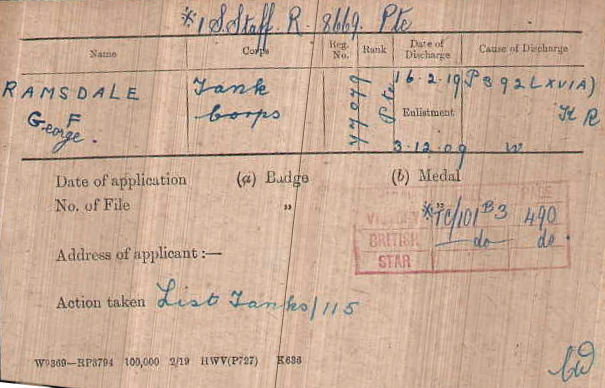 *1 S. Staff. R. 8669. Pte
Name Corps Reg. No. Rank Date of Discharge Cause of Discharge
RAMSDALE Tank 77079 Pte 16.2.19 P392(XVIA)
George F. Corps Enlistment KR
3.12.09 W
Date of application (a) Badge (b) Medal
No. of File "
PAGE
VICTORY *TC/101 B3 490
BRITISH do do.
STAR
Address of applicant :—
Action taken List Tanks/115
W9369—RP3794 100,000 2/19 HWV(P727) K636